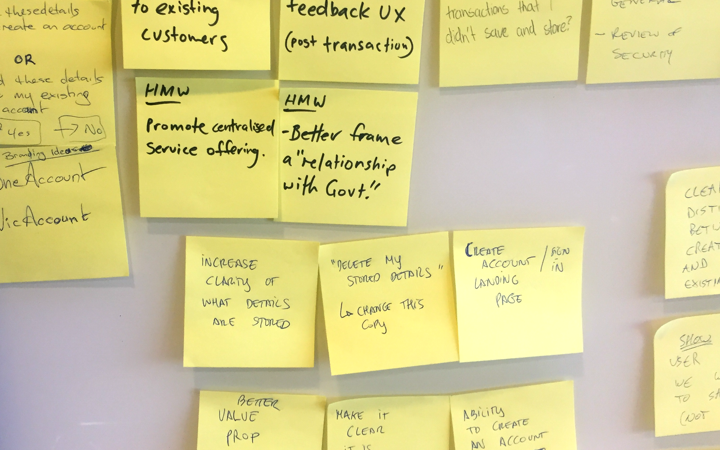 these details
create an account
OR
these details
my existing
account
Yes → No
Branding Ideas
OneAccount
VicAccount
to existing
customers
feedback UX
(post transaction)
transactions that I
didn't save and store?
GENERAL
- REVIEW OF
SECURITY
HMW
Promote centralised
Service offering.
HMW
- Better frame
a "relationship
with Govt."
INCREASE
CLARITY OF
WHAT DETAILS
ARE STORED
"DELETE MY
STORED DETAILS"
↳ CHANGE THIS
COPY
CREATE
ACCOUNT / SIGN IN
LANDING
PAGE
CLEAR
DIST
BETW
CREAT
AND
EXISTIN
SHOW
USER
WE
TO
(NOT
BETTER
VALUE
PROP
MAKE IT
CLEAR
IT IS
ABILITY
TO CREATE
AN ACCOUNT